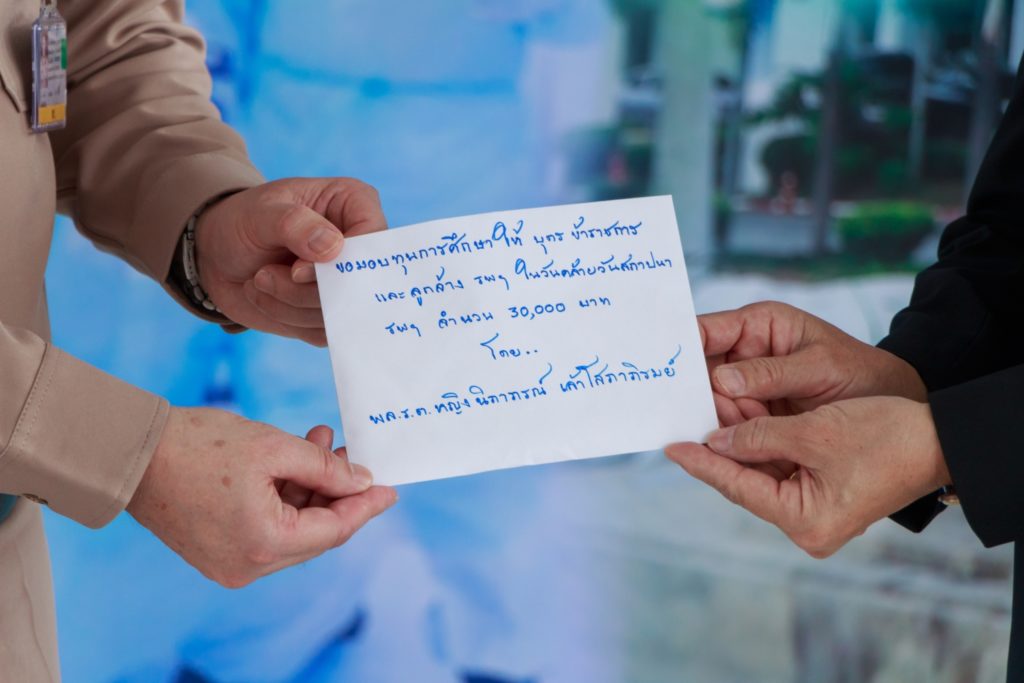 ขอมอบทุนการศึกษาให้ บุตร ข้าราชการ
และลูกจ้าง รพฯ ในวันคล้ายวันสถาปนา
รพฯ จำนวน 30,000 บาท
โดย..
พล.ร.ต.หญิง นิภาภรณ์ เค้าโสภาภิรมย์